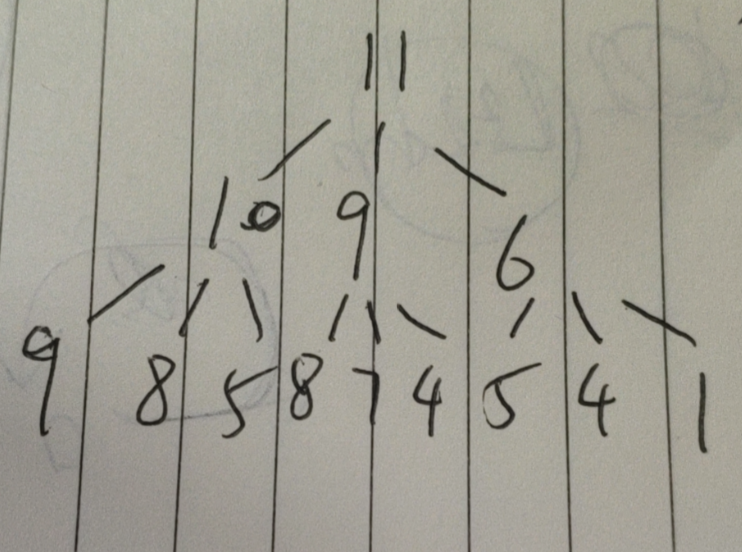 11
10 9 6
9 8 5 8 7 4 5 4 1